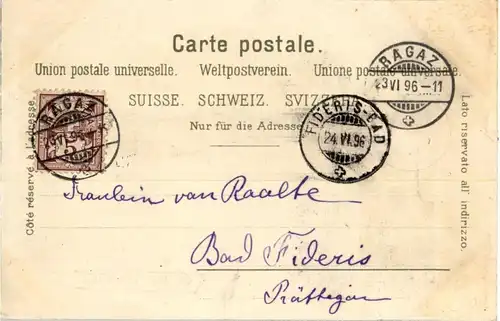 Carte postale.
Union postale universelle. Weltpostverein. Unione postale universale.
SUISSE. SCHWEIZ. SVIZ
Nur für die Adresse
Côté réservé à l'adresse.
Lato riservato all' indirizzo.
RAGAZ
23 VI 96-11
RAGAZ
23 VI 96
5
FIDERIS-BAD
24. VI. 96
Fräulein van Raalte
Bad Fideris
Prättigau